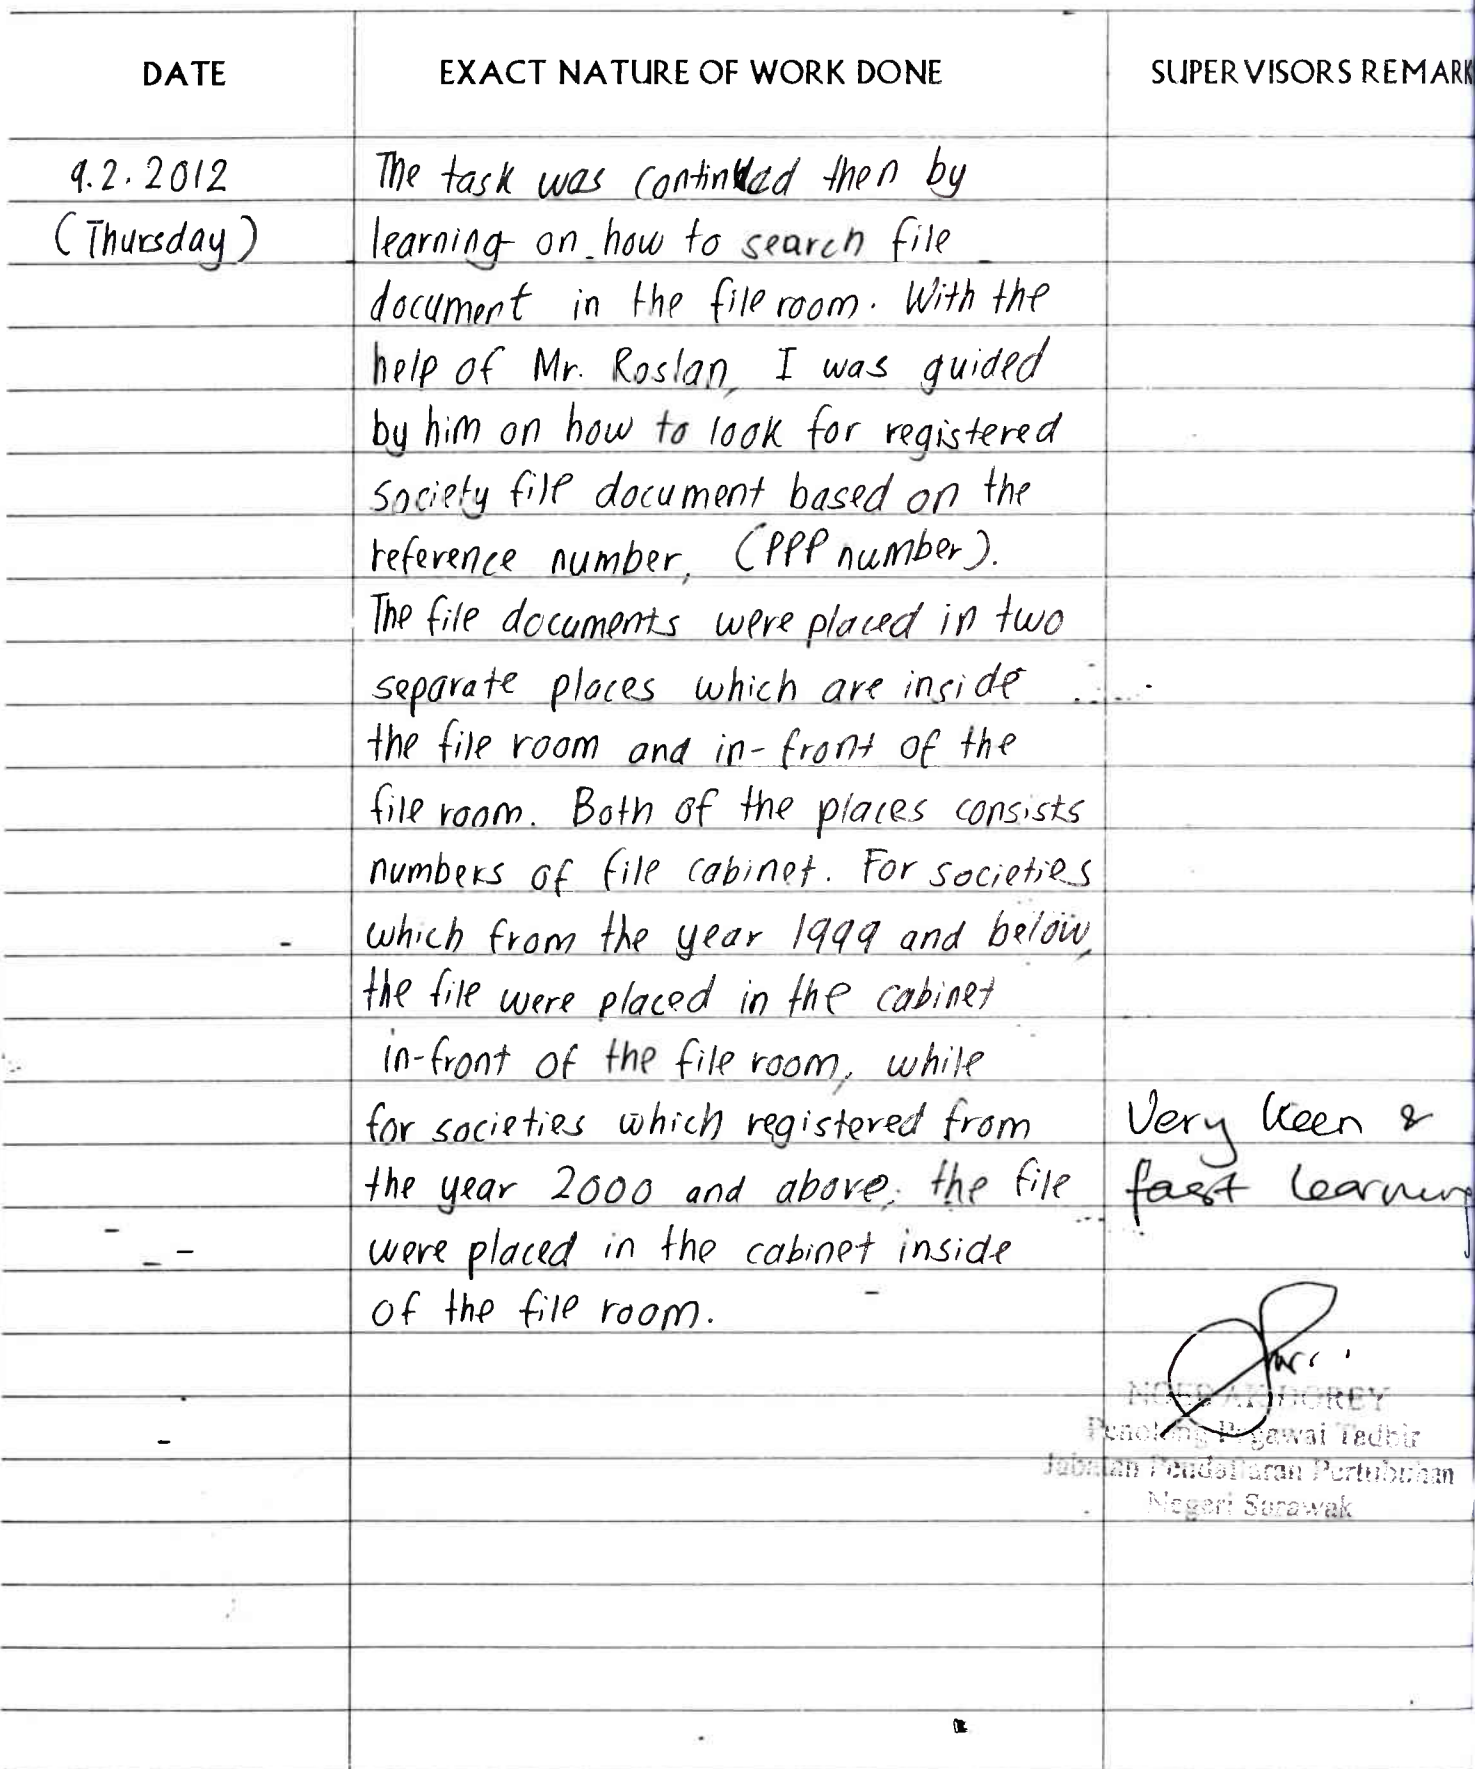 DATE EXACT NATURE OF WORK DONE SUPERVISORS REMARK
9.2.2012 The task was continued then by
(Thursday) learning on how to search file
document in the file room. With the
help of Mr. Roslan, I was guided
by him on how to look for registered
society file document based on the
reference number, (PPP number).
The file documents were placed in two
separate places which are inside
the file room and in-front of the
file room. Both of the places consists
numbers of file cabinet. For societies
which from the year 1999 and below,
the file were placed in the cabinet
in-front of the file room, while
for societies which registered from Very keen &
the year 2000 and above, the file fast learning
were placed in the cabinet inside
of the file room.
DOREY
Penolong Pegawai Tadbir
Jabatan Pendaftaran Pertubuhan
Negeri Sarawak